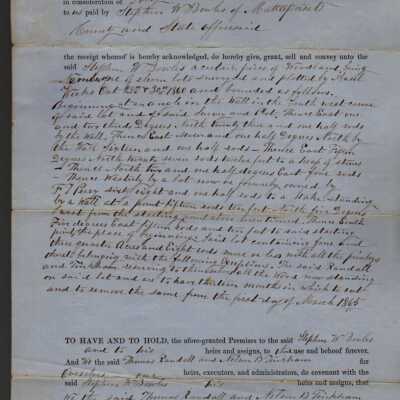 in consideration of
to us paid by Stephen W Dowles of Mattapoisett
County and State aforesaid
the receipt whereof is hereby acknowledged, do hereby give, grant, sell and convey unto the
said Stephen W Dowles a certain piece of Woodland lying
one of eleven lots surveyed and plotted by
Oct 25 & 30 1860 and bounded as follows.
Beginning at an angle in the Wall in the South west corner
of said lot and of said Survey and lot, thence East one
and two third Degrees North twenty three and one half rods
by the Wall, Thence East seven and one half Degrees North by
the Wall Sixteen and one half rods - Thence East Fifteen
Degrees North seven rods twelve feet to a heap of stones
- Thence North two and one half degrees East four rods
- Thence Westerly by a lot now or formerly owned by
sixty eight and one half rods to a Stake standing
by a Wall at a point fifteen rods ten feet North five Degrees
West from the starting point above mentioned. Thence South
Five degrees East fifteen rods and ten feet to said starting
point the place of beginning. Said lot containing four and
three quarter Acres and Eight rods more or less with all the privileges
thereto belonging with the following exceptions. The said Randall
and Tinkham reserving to themselves all the Wood now standing
on said lot and are to have thirteen months in which to cut
and to remove the same from the first day of March 1865
TO HAVE AND TO HOLD, the afore-granted Premises to the said Stephen W Dowles
and to his heirs and assigns, to their use and behoof forever.
And we the said Thomas Randall and Nelson B Tinkham for
Ourselves our heirs, executors, and administrators, do covenant with the
said Stephen W Dowles his heirs and assigns, that
We the said Thomas Randall and Nelson B Tinkham